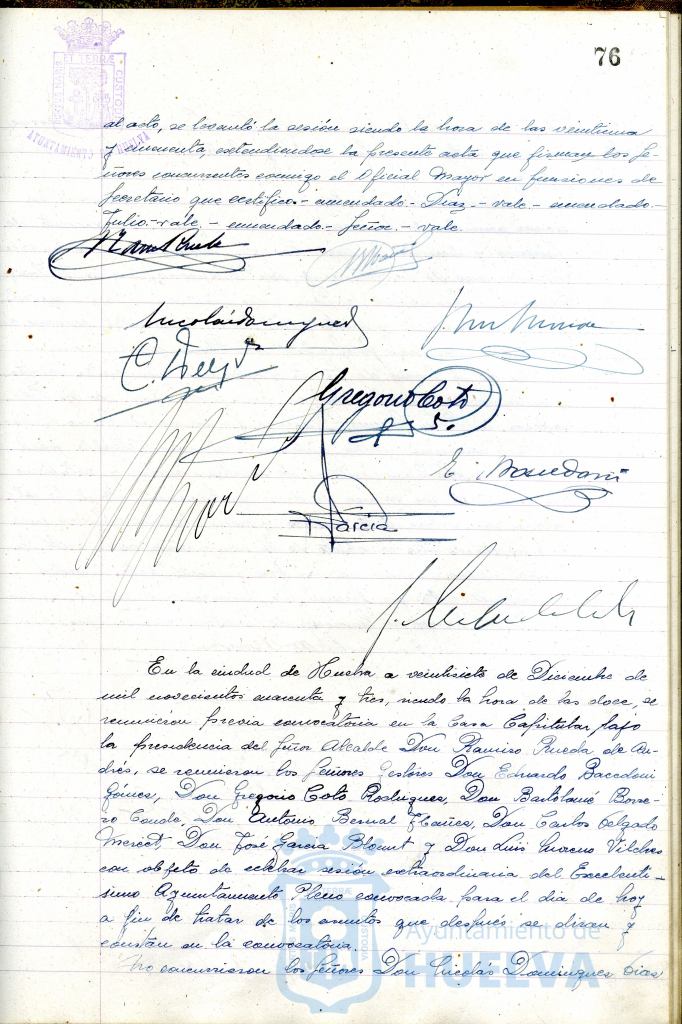 76
TERRÆ CUSTODIA
AYUNTAMIENTO HUELVA
al acto, se levantó la sesión siendo la hora de las veintiuna
y cincuenta, extendiendose la presente acta que firman los Se-
ñores concurrentes conmigo el Oficial Mayor en funciones de
Secretario que certifico.- enmendado.- Diaz.- vale.- enmendado.-
Julio.- vale.- enmendado.- Señor.- vale.
Gregorio Coto
García
En la ciudad de Huelva a veintisiete de Diciembre de
mil novecientos cuarenta y tres, siendo la hora de las doce, se
reunieron previa convocatoria en la Casa Capitular bajo
la presidencia del Señor Alcalde Don Ramiro Rueda de An-
drés, se reunieron los Señores Gestores Don Eduardo Bacedoni
Gómez, Don Gregorio Coto Rodriguez, Don Bartolomé Borre-
ro Conde, Don Antonio Bernal Ibañez, Don Carlos Delgado
Don José García Blount y Don Luis Moreno Vilches
con objeto de celebrar sesión extraordinaria del Excelentí-
simo Ayuntamiento Pleno convocada para el dia de hoy
a fin de tratar de los asuntos que después se diran y
constan en la convocatoria.
No concurrieron los Señores Don Nicolás Dominguez Dias
Ayuntamiento de
HUELVA